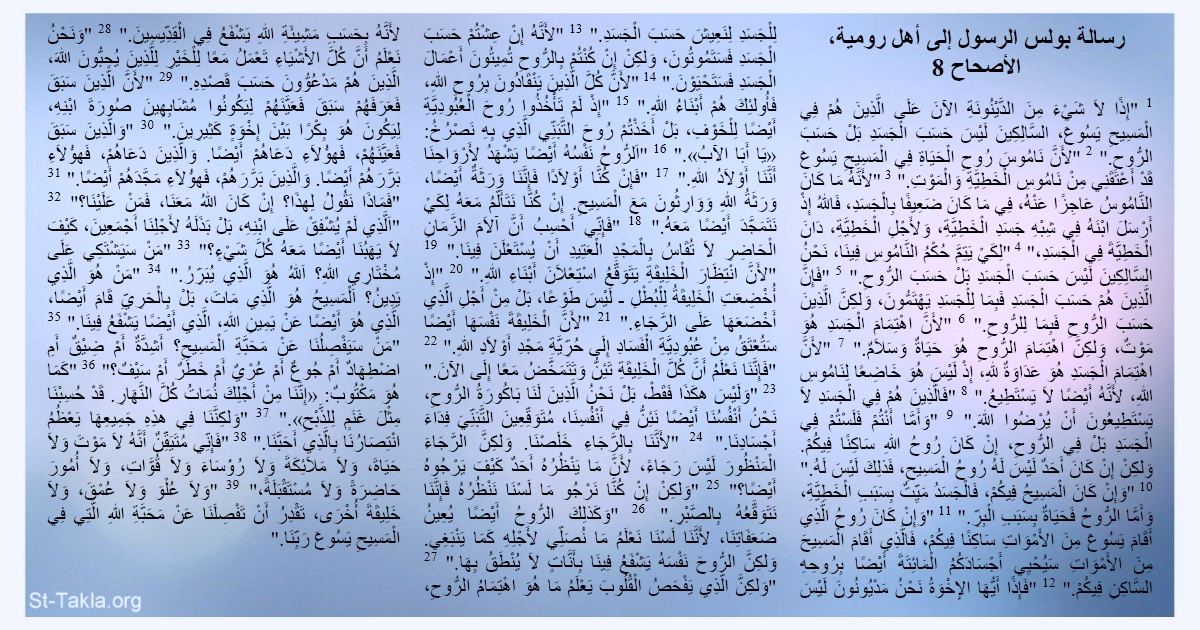 رسالة بولس الرسول إلى أهل رومية،
الأصحاح 8
1 "إِذًا لاَ شَيْءَ مِنَ الدَّيْنُونَةِ الآنَ عَلَى الَّذِينَ هُمْ فِي
الْمَسِيحِ يَسُوعَ، السَّالِكِينَ لَيْسَ حَسَبَ الْجَسَدِ بَلْ حَسَبَ
الرُّوحِ." 2 "لأَنَّ نَامُوسَ رُوحِ الْحَيَاةِ فِي الْمَسِيحِ يَسُوعَ
قَدْ أَعْتَقَنِي مِنْ نَامُوسِ الْخَطِيَّةِ وَالْمَوْتِ." 3 "لأَنَّهُ مَا كَانَ
النَّامُوسُ عَاجِزًا عَنْهُ، فِي مَا كَانَ ضَعِيفًا بِالْجَسَدِ، فَاللهُ إِذْ
أَرْسَلَ ابْنَهُ فِي شِبْهِ جَسَدِ الْخَطِيَّةِ، وَلأَجْلِ الْخَطِيَّةِ، دَانَ
الْخَطِيَّةَ فِي الْجَسَدِ،" 4 "لِكَيْ يَتِمَّ حُكْمُ النَّامُوسِ فِينَا، نَحْنُ
السَّالِكِينَ لَيْسَ حَسَبَ الْجَسَدِ بَلْ حَسَبَ الرُّوحِ." 5 "فَإِنَّ
الَّذِينَ هُمْ حَسَبَ الْجَسَدِ فَبِمَا لِلْجَسَدِ يَهْتَمُّونَ، وَلكِنَّ الَّذِينَ
حَسَبَ الرُّوحِ فَبِمَا لِلرُّوحِ." 6 "لأَنَّ اهْتِمَامَ الْجَسَدِ هُوَ
مَوْتٌ، وَلكِنَّ اهْتِمَامَ الرُّوحِ هُوَ حَيَاةٌ وَسَلاَمٌ." 7 "لأَنَّ
اهْتِمَامَ الْجَسَدِ هُوَ عَدَاوَةٌ للهِ، إِذْ لَيْسَ هُوَ خَاضِعًا لِنَامُوسِ
اللهِ، لأَنَّهُ أَيْضًا لاَ يَسْتَطِيعُ." 8 "فَالَّذِينَ هُمْ فِي الْجَسَدِ لاَ
يَسْتَطِيعُونَ أَنْ يُرْضُوا اللهَ." 9 "وَأَمَّا أَنْتُمْ فَلَسْتُمْ فِي
الْجَسَدِ بَلْ فِي الرُّوحِ، إِنْ كَانَ رُوحُ اللهِ سَاكِنًا فِيكُمْ.
وَلكِنْ إِنْ كَانَ أَحَدٌ لَيْسَ لَهُ رُوحُ الْمَسِيحِ، فَذلِكَ لَيْسَ لَهُ."
10 "وَإِنْ كَانَ الْمَسِيحُ فِيكُمْ، فَالْجَسَدُ مَيِّتٌ بِسَبَبِ الْخَطِيَّةِ،
وَأَمَّا الرُّوحُ فَحَيَاةٌ بِسَبَبِ الْبِرِّ." 11 "وَإِنْ كَانَ رُوحُ الَّذِي
أَقَامَ يَسُوعَ مِنَ الأَمْوَاتِ سَاكِنًا فِيكُمْ، فَالَّذِي أَقَامَ الْمَسِيحَ
مِنَ الأَمْوَاتِ سَيُحْيِي أَجْسَادَكُمُ الْمَائِتَةَ أَيْضًا بِرُوحِهِ
السَّاكِنِ فِيكُمْ." 12 "فَإِذًا أَيُّهَا الإِخْوَةُ نَحْنُ مَدْيُونُونَ لَيْسَ
لِلْجَسَدِ لِنَعِيشَ حَسَبَ الْجَسَدِ." 13 "لأَنَّهُ إِنْ عِشْتُمْ حَسَبَ
الْجَسَدِ فَسَتَمُوتُونَ، وَلكِنْ إِنْ كُنْتُمْ بِالرُّوحِ تُمِيتُونَ أَعْمَالَ
الْجَسَدِ فَسَتَحْيَوْنَ." 14 "لأَنَّ كُلَّ الَّذِينَ يَنْقَادُونَ بِرُوحِ اللهِ،
فَأُولئِكَ هُمْ أَبْنَاءُ اللهِ." 15 "إِذْ لَمْ تَأْخُذُوا رُوحَ الْعُبُودِيَّةِ
أَيْضًا لِلْخَوْفِ، بَلْ أَخَذْتُمْ رُوحَ التَّبَنِّي الَّذِي بِهِ نَصْرُخُ:
«يَا أَبَا الآبُ»." 16 "اَلرُّوحُ نَفْسُهُ أَيْضًا يَشْهَدُ لأَرْوَاحِنَا
أَنَّنَا أَوْلاَدُ اللهِ." 17 "فَإِنْ كُنَّا أَوْلاَدًا فَإِنَّنَا وَرَثَةٌ أَيْضًا،
وَرَثَةُ اللهِ وَوَارِثُونَ مَعَ الْمَسِيحِ. إِنْ كُنَّا نَتَأَلَّمُ مَعَهُ لِكَيْ
نَتَمَجَّدَ أَيْضًا مَعَهُ." 18 "فَإِنِّي أَحْسِبُ أَنَّ آلاَمَ الزَّمَانِ
الْحَاضِرِ لاَ تُقَاسُ بِالْمَجْدِ الْعَتِيدِ أَنْ يُسْتَعْلَنَ فِينَا." 19
"لأَنَّ انْتِظَارَ الْخَلِيقَةِ يَتَوَقَّعُ اسْتِعْلاَنَ أَبْنَاءِ اللهِ." 20 "إِذْ
أُخْضِعَتِ الْخَلِيقَةُ لِلْبُطْلِ ­ـ لَيْسَ طَوْعًا، بَلْ مِنْ أَجْلِ الَّذِي
أَخْضَعَهَا ­عَلَى الرَّجَاءِ." 21 "لأَنَّ الْخَلِيقَةَ نَفْسَهَا أَيْضًا
سَتُعْتَقُ مِنْ عُبُودِيَّةِ الْفَسَادِ إِلَى حُرِّيَّةِ مَجْدِ أَوْلاَدِ اللهِ." 22
"فَإِنَّنَا نَعْلَمُ أَنَّ كُلَّ الْخَلِيقَةِ تَئِنُّ وَتَتَمَخَّضُ مَعًا إِلَى الآنَ."
23 "وَلَيْسَ هكَذَا فَقَطْ، بَلْ نَحْنُ الَّذِينَ لَنَا بَاكُورَةُ الرُّوحِ،
نَحْنُ أَنْفُسُنَا أَيْضًا نَئِنُّ فِي أَنْفُسِنَا، مُتَوَقِّعِينَ التَّبَنِّيَ فِدَاءَ
أَجْسَادِنَا." 24 "لأَنَّنَا بِالرَّجَاءِ خَلَصْنَا. وَلكِنَّ الرَّجَاءَ
الْمَنْظُورَ لَيْسَ رَجَاءً، لأَنَّ مَا يَنْظُرُهُ أَحَدٌ كَيْفَ يَرْجُوهُ
أَيْضًا؟" 25 "وَلكِنْ إِنْ كُنَّا نَرْجُو مَا لَسْنَا نَنْظُرُهُ فَإِنَّنَا
نَتَوَقَّعُهُ بِالصَّبْرِ." 26 "وَكَذلِكَ الرُّوحُ أَيْضًا يُعِينُ
ضَعَفَاتِنَا، لأَنَّنَا لَسْنَا نَعْلَمُ مَا نُصَلِّي لأَجْلِهِ كَمَا يَنْبَغِي.
وَلكِنَّ الرُّوحَ نَفْسَهُ يَشْفَعُ فِينَا بِأَنَّاتٍ لاَ يُنْطَقُ بِهَا." 27
"وَلكِنَّ الَّذِي يَفْحَصُ الْقُلُوبَ يَعْلَمُ مَا هُوَ اهْتِمَامُ الرُّوحِ،
لأَنَّهُ بِحَسَبِ مَشِيئَةِ اللهِ يَشْفَعُ فِي الْقِدِّيسِينَ." 28 "وَنَحْنُ
نَعْلَمُ أَنَّ كُلَّ الأَشْيَاءِ تَعْمَلُ مَعًا لِلْخَيْرِ لِلَّذِينَ يُحِبُّونَ اللهَ،
الَّذِينَ هُمْ مَدْعُوُّونَ حَسَبَ قَصْدِهِ." 29 "لأَنَّ الَّذِينَ سَبَقَ
فَعَرَفَهُمْ سَبَقَ فَعَيَّنَهُمْ لِيَكُونُوا مُشَابِهِينَ صُورَةَ ابْنِهِ،
لِيَكُونَ هُوَ بِكْرًا بَيْنَ إِخْوَةٍ كَثِيرِينَ." 30 "وَالَّذِينَ سَبَقَ
فَعَيَّنَهُمْ، فَهؤُلاَءِ دَعَاهُمْ أَيْضًا. وَالَّذِينَ دَعَاهُمْ، فَهؤُلاَءِ
بَرَّرَهُمْ أَيْضًا. وَالَّذِينَ بَرَّرَهُمْ، فَهؤُلاَءِ مَجَّدَهُمْ أَيْضًا." 31
"فَمَاذَا نَقُولُ لِهذَا؟ إِنْ كَانَ اللهُ مَعَنَا، فَمَنْ عَلَيْنَا؟" 32
"اَلَّذِي لَمْ يُشْفِقْ عَلَى ابْنِهِ، بَلْ بَذَلَهُ لأَجْلِنَا أَجْمَعِينَ، كَيْفَ
لاَ يَهَبُنَا أَيْضًا مَعَهُ كُلَّ شَيْءٍ؟" 33 "مَنْ سَيَشْتَكِي عَلَى
مُخْتَارِي اللهِ؟ اَللهُ هُوَ الَّذِي يُبَرِّرُ." 34 "مَنْ هُوَ الَّذِي
يَدِينُ؟ اَلْمَسِيحُ هُوَ الَّذِي مَاتَ، بَلْ بِالْحَرِيِّ قَامَ أَيْضًا،
الَّذِي هُوَ أَيْضًا عَنْ يَمِينِ اللهِ، الَّذِي أَيْضًا يَشْفَعُ فِينَا." 35
"مَنْ سَيَفْصِلُنَا عَنْ مَحَبَّةِ الْمَسِيحِ؟ أَشِدَّةٌ أَمْ ضِيْقٌ أَمِ
اضْطِهَادٌ أَمْ جُوعٌ أَمْ عُرْيٌ أَمْ خَطَرٌ أَمْ سَيْفٌ؟" 36 "كَمَا
هُوَ مَكْتُوبٌ: «إِنَّنَا مِنْ أَجْلِكَ نُمَاتُ كُلَّ النَّهَارِ. قَدْ حُسِبْنَا
مِثْلَ غَنَمٍ لِلذَّبْحِ»." 37 "وَلكِنَّنَا فِي هذِهِ جَمِيعِهَا يَعْظُمُ
انْتِصَارُنَا بِالَّذِي أَحَبَّنَا." 38 "فَإِنِّي مُتَيَقِّنٌ أَنَّهُ لاَ مَوْتَ وَلاَ
حَيَاةَ، وَلاَ مَلاَئِكَةَ وَلاَ رُؤَسَاءَ وَلاَ قُوَّاتِ، وَلاَ أُمُورَ
حَاضِرَةً وَلاَ مُسْتَقْبَلَةً،" 39 "وَلاَ عُلْوَ وَلاَ عُمْقَ، وَلاَ
خَلِيقَةَ أُخْرَى، تَقْدِرُ أَنْ تَفْصِلَنَا عَنْ مَحَبَّةِ اللهِ الَّتِي فِي
الْمَسِيحِ يَسُوعَ رَبِّنَا."
St-Takla.org